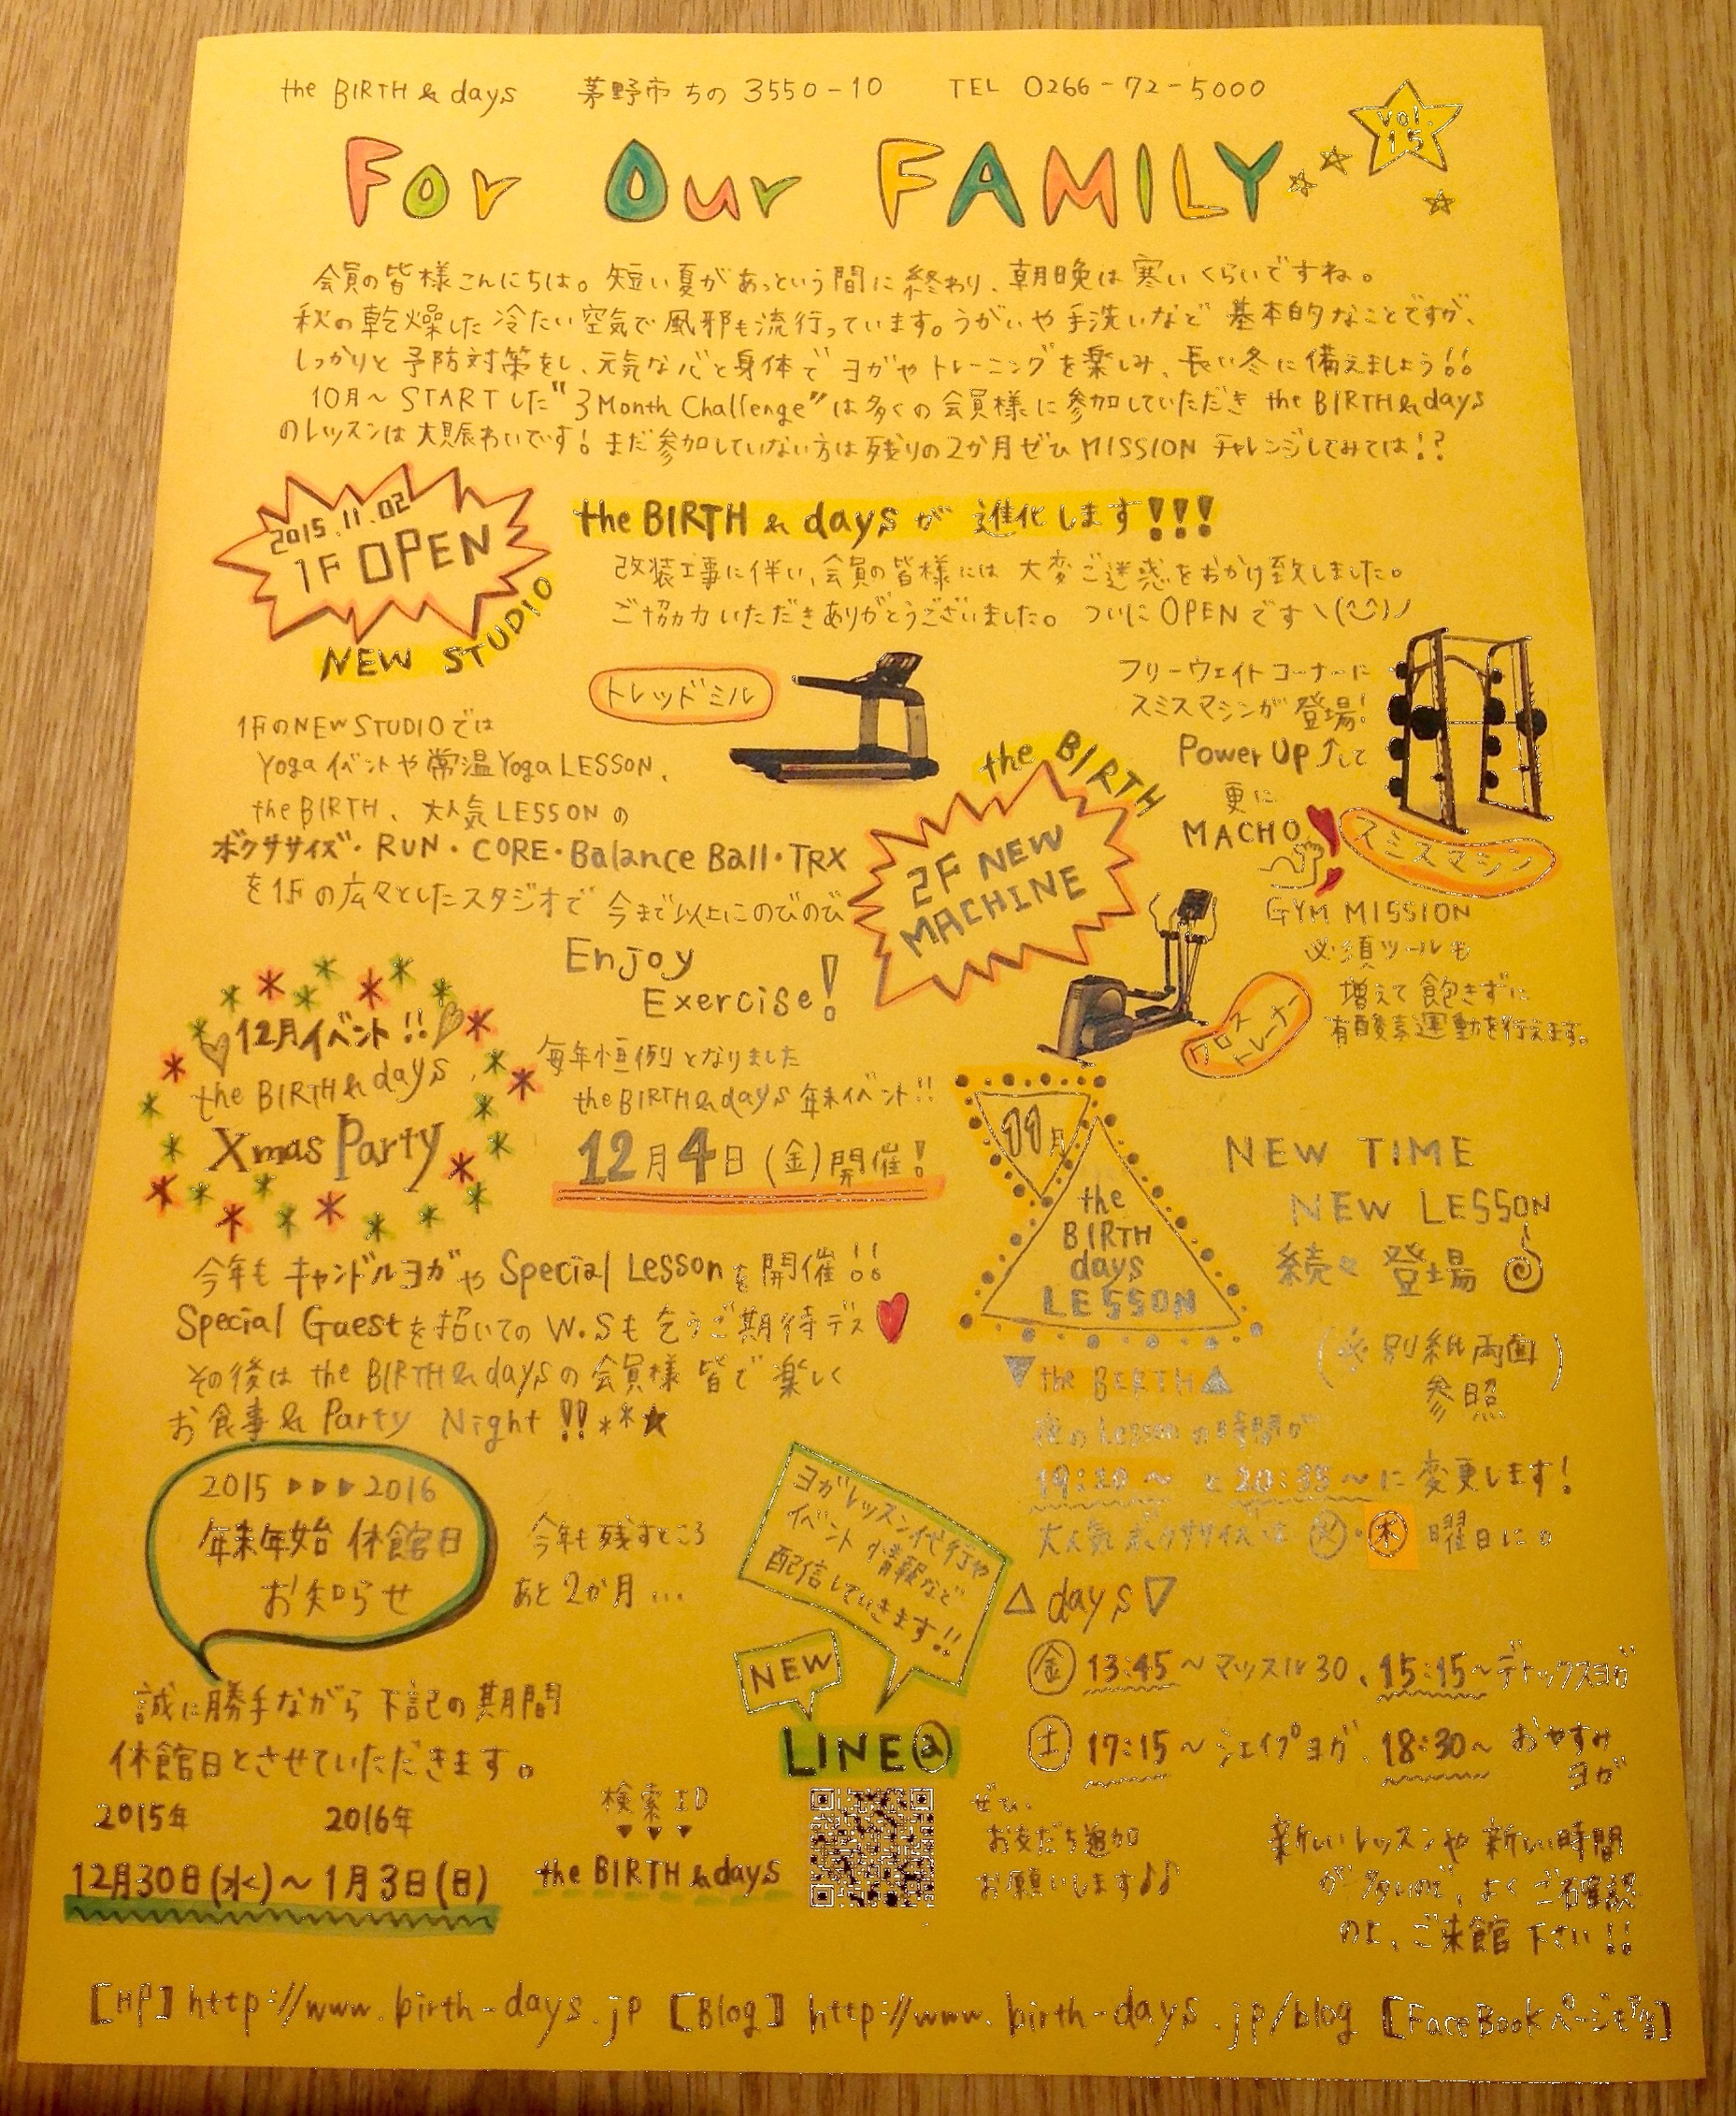 the BIRTH & days 茅野市ちの3550-10 TEL 0266-72-5000
Vol.
15
For Our FAMILY
会員の皆様こんにちは。短い夏があっという間に終わり、朝晩は寒いくらいですね。
秋の乾燥した冷たい空気で風邪も流行っています。うがいや手洗いなど基本的なことですが、
しっかりと予防対策をし、元気な心と身体でヨガやトレーニングを楽しみ、長い冬に備えましょう!!
10月〜STARTした"3Month Challenge"は多くの会員様に参加していただきthe BIRTH&days
のレッスンは大賑わいです!まだ参加していない方は残りの2か月ぜひMISSIONチャレンジしてみては!?
2015.11.02
1F OPEN
NEW STUDIO
the BIRTH & daysが進化します!!!
改装工事に伴い、会員の皆様には大変ご迷惑をおかけ致しました。
ご協力いただきありがとうございました。ついにOPENです\(^^)/
トレッドミル
1FのNEW STUDIOでは
Yogaイベントや常温Yoga LESSON、
the BIRTH、大人気LESSONの
ボクササイズ・RUN・CORE・Balance Ball・TRX
を1Fの広々としたスタジオで今まで以上にのびのび
Enjoy
Exercise!
フリーウェイトコーナーに
スミスマシンが登場!
Power Up↑して
更に
MACHO
スミスマシン
the BIRTH
2F NEW
MACHINE
GYM MISSION
必須ツールも
増えて飽きずに
有酸素運動を行えます。
クロス
トレーナー
12月イベント!!
the BIRTH&days
Xmas Party
毎年恒例となりました
the BIRTH&days年末イベント!!
12月4日(金)開催!
今年もキャンドルヨガやSpecial Lessonを開催!!
Special Guestを招いてのW.Sも乞うご期待デス
その後はthe BIRTH&daysの会員様皆で楽しく
お食事&Party Night!!**★
11月
the
BIRTH
days
LESSON
NEW TIME
NEW LESSON
続々登場
(※別紙両面
参照)
▼the BIRTH▲
夜のLessonの時間が
19:20〜と20:35〜に変更します!
大人気ボクササイズは火・木曜日に。
△days▽
金 13:45〜マッスル30、15:15〜デトックスヨガ
土 17:15〜シェイプヨガ、18:30〜おやすみ
ヨガ
新しいレッスンや新しい時間
が多いので、よくご確認
の上、ご来館下さい!!
2015▶▶▶2016
年末年始休館日
お知らせ
今年も残すところ
あと2か月…
誠に勝手ながら下記の期間
休館日とさせていただきます。
2015年 2016年
12月30日(水)〜1月3日(日)
ヨガレッスン代行や
イベント情報など
配信していきます!!
NEW
LINE@
検索ID
♥♥♥
the BIRTH & days
ぜひ、
お友だち追加
お願いします♪♪
[HP] http://www.birth-days.jp [Blog] http://www.birth-days.jp/blog [FaceBookページもアリ]